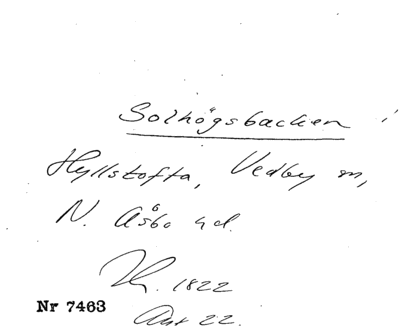 Solhögsbacken i
Hyllstofta, Vedby sn,
N. Åsbo hd.
1822
Nr 7463
22.